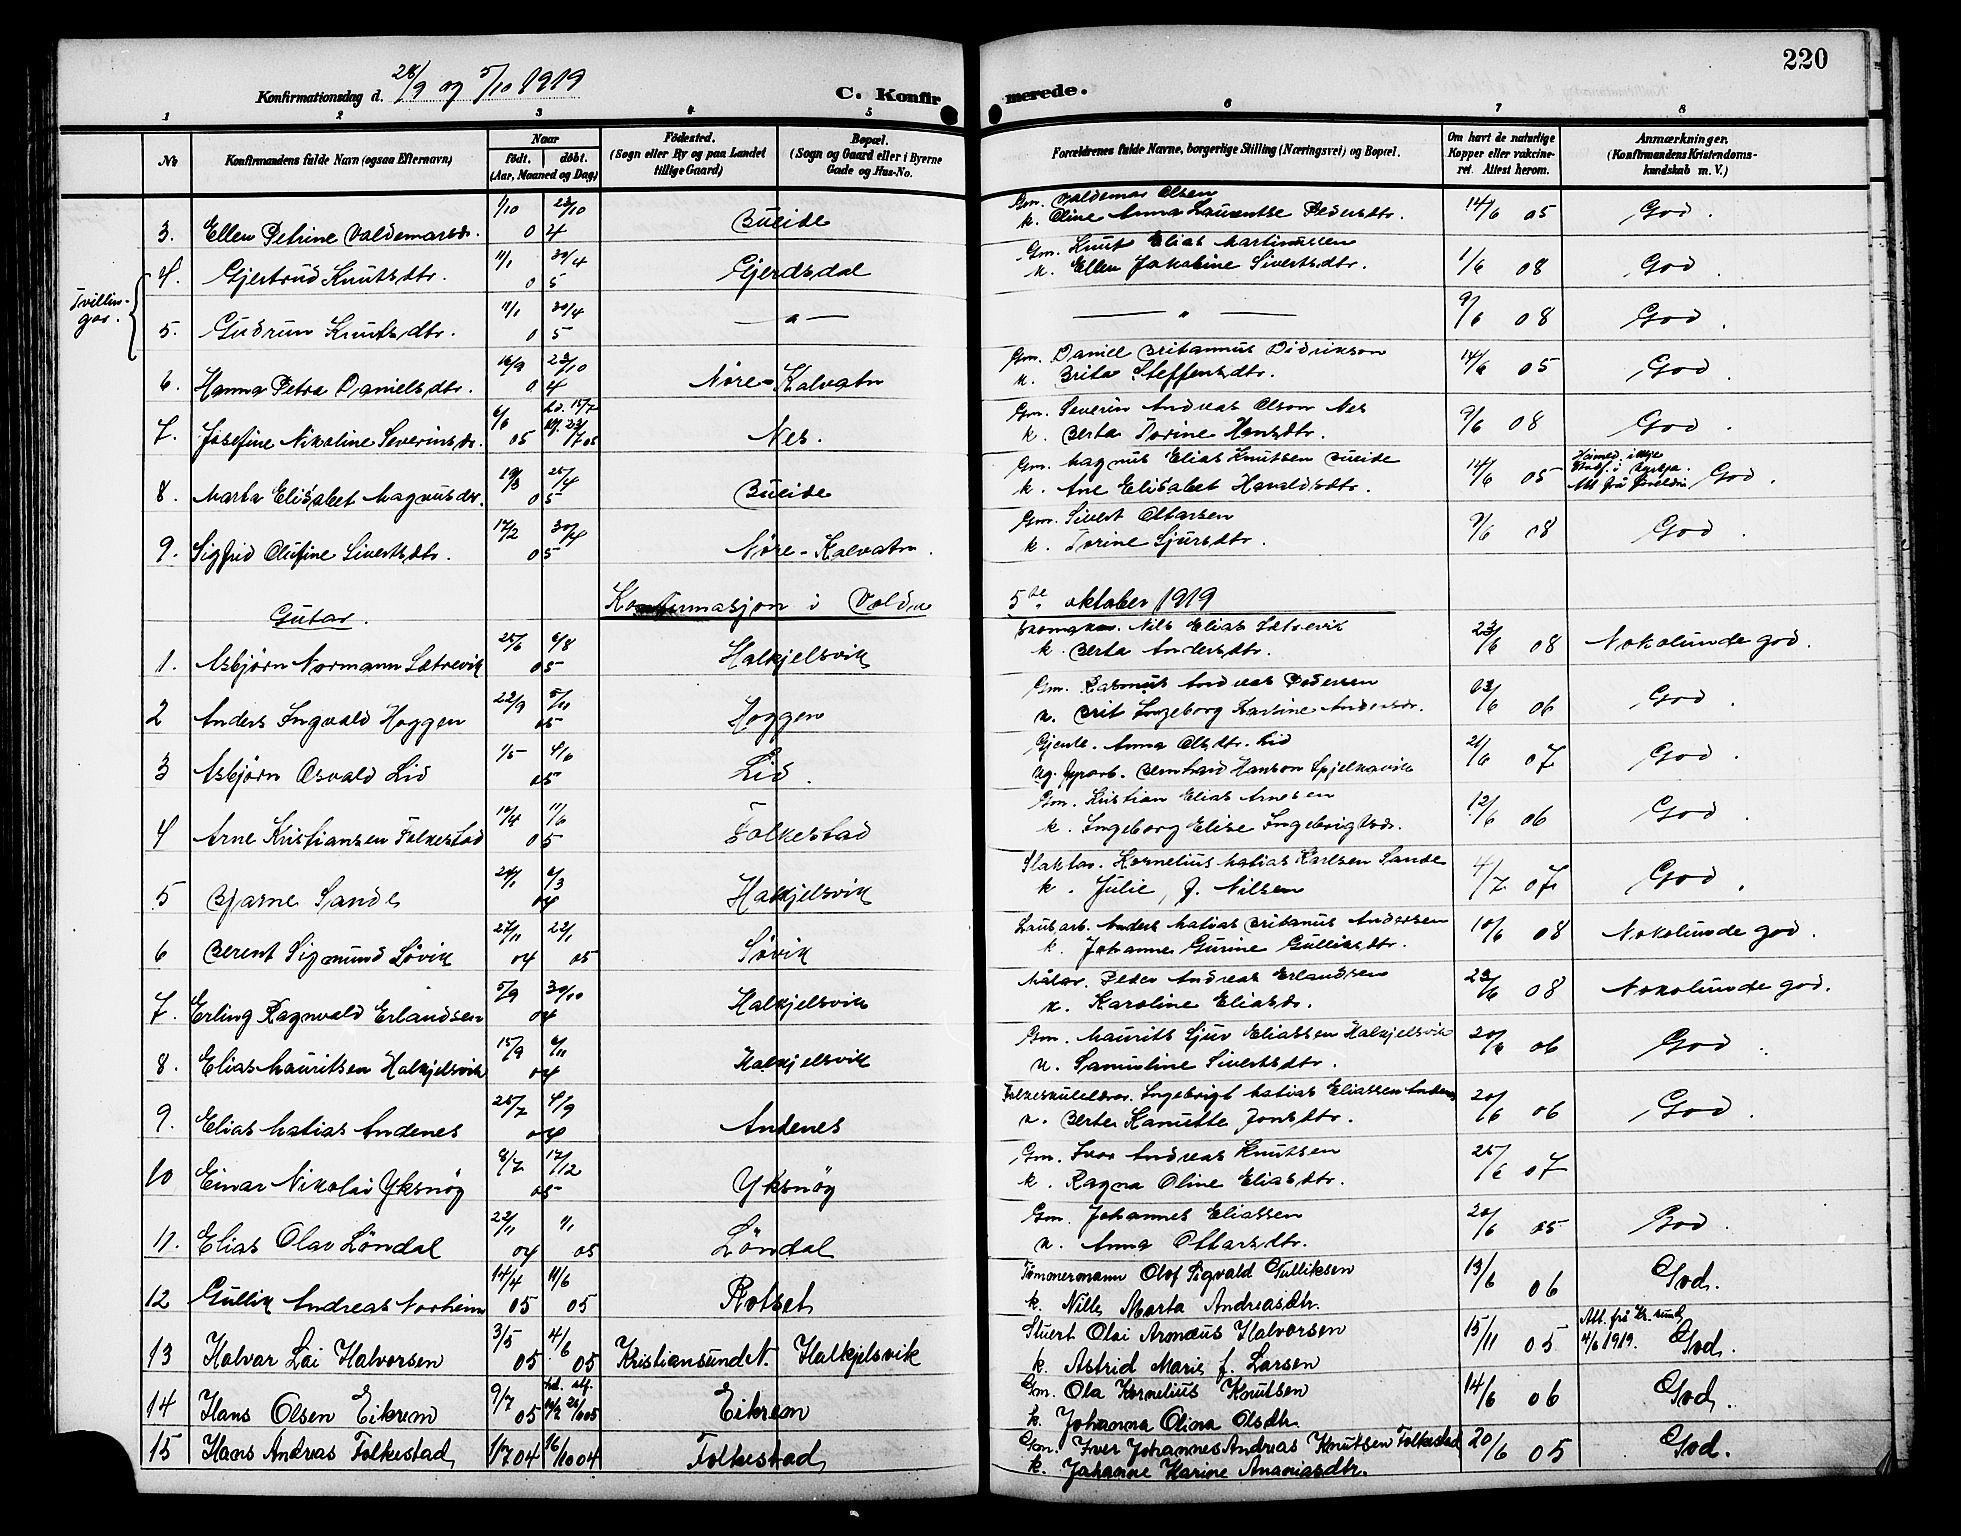 220
Konfirmationsdag d. 28/9 og 5/10 1919
C. Konfirmerede.
1 2 3 4 5 6 7 8
No
Konfirmandens fulde Navn (ogsaa Efternavn)
Naar
født. døbt.
(Aar, Maaned og Dag)
Fødested.
(Sogn eller By og paa Landet
tillige Gaard)
Bopæl.
(Sogn og Gaard eller i Byerne
Gade og Hus-No.
Forældrenes fulde Navne, borgerlige Stilling (Næringsvei) og Bopæl.
Om havt de naturlige
Kopper eller vakcine-
ret. Attest herom.
Anmærkninger.
(Konfirmandens Kristendoms-
kundskab m. V.)
3. Ellen Petrine Valdemarsdr. 1/10 23/10 04 Bueide Gm. Valdemar Olsen 14/6 05 God.
k. Oline Anna Laurentse Pedersdtr.
Tvillin-
gar.
4. Gjertrud Knutsdtr. 11/1 30/4 05 Gjerdsdal Gm. Knut Elias Martinussen 1/6 08 God.
k. Ellen Jakobine Sivertsdtr.
5. Gudrun Knutsdtr. 11/1 30/4 05 — " — — " — 9/6 08 God.
6. Hanna Petra Danielsdtr. 16/9 23/10 04 Nøre-Kalvatn Gm. Daniel Britannus Didrikson 14/6 05 God.
k. Brita Steffensdtr.
7. Josefine Nikoline Severinsdr. 6/6 05 hd. 15/7 stf. 23/7 05 Nes. Gm. Severin Andreas Olson Nes 9/6 08 God.
k. Berta Torine Hansdtr.
8. Marta Elisabet Magnusdr. 19/3 25/4 05 Bueide Gm. Magnus Elias Knutsen Bueide 14/6 05 God.
k. Ane Elisabet Havaldsdtr.
9. Sigfrid Olufine Sivertsdtr. 17/2 30/4 05 Nøre-Kalvatn. Gm. Sivert Ottarsen 9/6 08 God.
k. Torine Sjursdtr.
Konfirmasjon i Volda 5te oktober 1919
Gutar.
1. Asbjørn Normann Sætrevik 25/6 6/8 05 Halkjelsvik Nils Elias Sætrevik 23/6 08 Nokolunde god.
k. Berta Andersdtr.
2 Anders Ingvald Hoggen 22/9 5/11 05 Hoggen Gm. Rasmus Andreas Pedersen 23/6 06 God.
k. Brit Ingeborg Karsine Andersdr.
3 Asbjørn Osvald Lid 1/5 4/6 05 Lid. Gjente. Anna Olsdtr. Lid 21/6 07 God.
Ug. fyrarb. Bernhard Hanson Spjelkavik
4 Arne Kristiansen Folkestad 10/4 11/6 05 Folkestad Gm. Kristian Elias Arnesen 12/6 06 God.
k. Ingeborg Elise Ingebrigtsdr.
5 Bjarne Sande 24/1 6/3 04 Halkjelsvik Slaktar. Kornelius Matias Karlsen Sande 4/7 07 God.
k. Julie, f. Nilsen
6 Berent Sigmund Løvik 27/11 04 22/1 05 Løvik Lausarb. Anders Matias Britanus Andersen 10/6 08 Nokolunde god.
k. Johanne Gurine Gulliksdtr.
7. Erling Ragnvald Erlandsen 5/9 30/10 04 Halkjelsvik Målar. Peder Andreas Erlandsen 23/6 08 Nokolunde god.
k. Karoline Eliasdr.
8. Elias Mauritsen Halkjelsvik 15/9 6/11 04 Halkjelsvik Gm. Maurits Sjur Eliassen Halkjelsvik 20/6 06 God.
k. Samuline Sivertsdtr.
9. Elias Matias Andenes 25/7 4/9 04 Andenes Folkeskulelærar. Ingebrigt Matias Eliassen Andenes 20/6 06 God.
k. Berte Kanutte Jonsdtr.
10 Einar Nikolai Yksnøy 8/7 17/12 05 Yksnøy Gm. Ivar Andreas Knutsen 25/6 07
k. Ragna Oline Eliasdtr.
11. Elias Olav Løndal 22/11 04 1/1 05 Løndal Gm. Johannes Eliassen 20/6 05 God.
k. Anna Ottarsdtr.
12 Gullik Andreas Norheim 14/4 05 11/6 05 Rotset Tømmermann Olof Sigvald Gulliksen 13/6 06 God.
k. Nille Marta Andreasdtr.
13 Halvar Lai Halvorsen 3/5 05 4/6 05 Kristiansund N. Halkjelsvik Stuert Olai Armæus Halvorsen 15/11 05 Att. frå Kr.sund 4/6 1919. God.
k. Astrid Marie f. Larsen
14 Hans Olsen Eikrem 9/7 05 hd. stf. 05 Eikrem Gm. Ola Kornelius Knutsen 14/6 06 God.
k. Johanna Olina Olsdtr.
15 Hans Andras Folkestad 1/7 04 16/10 04 Folkestad Gm. Iver Johannes Andreas Knutsen Folkestad 20/6 05 God.
k. Johanne Karine Ananiasdtr.